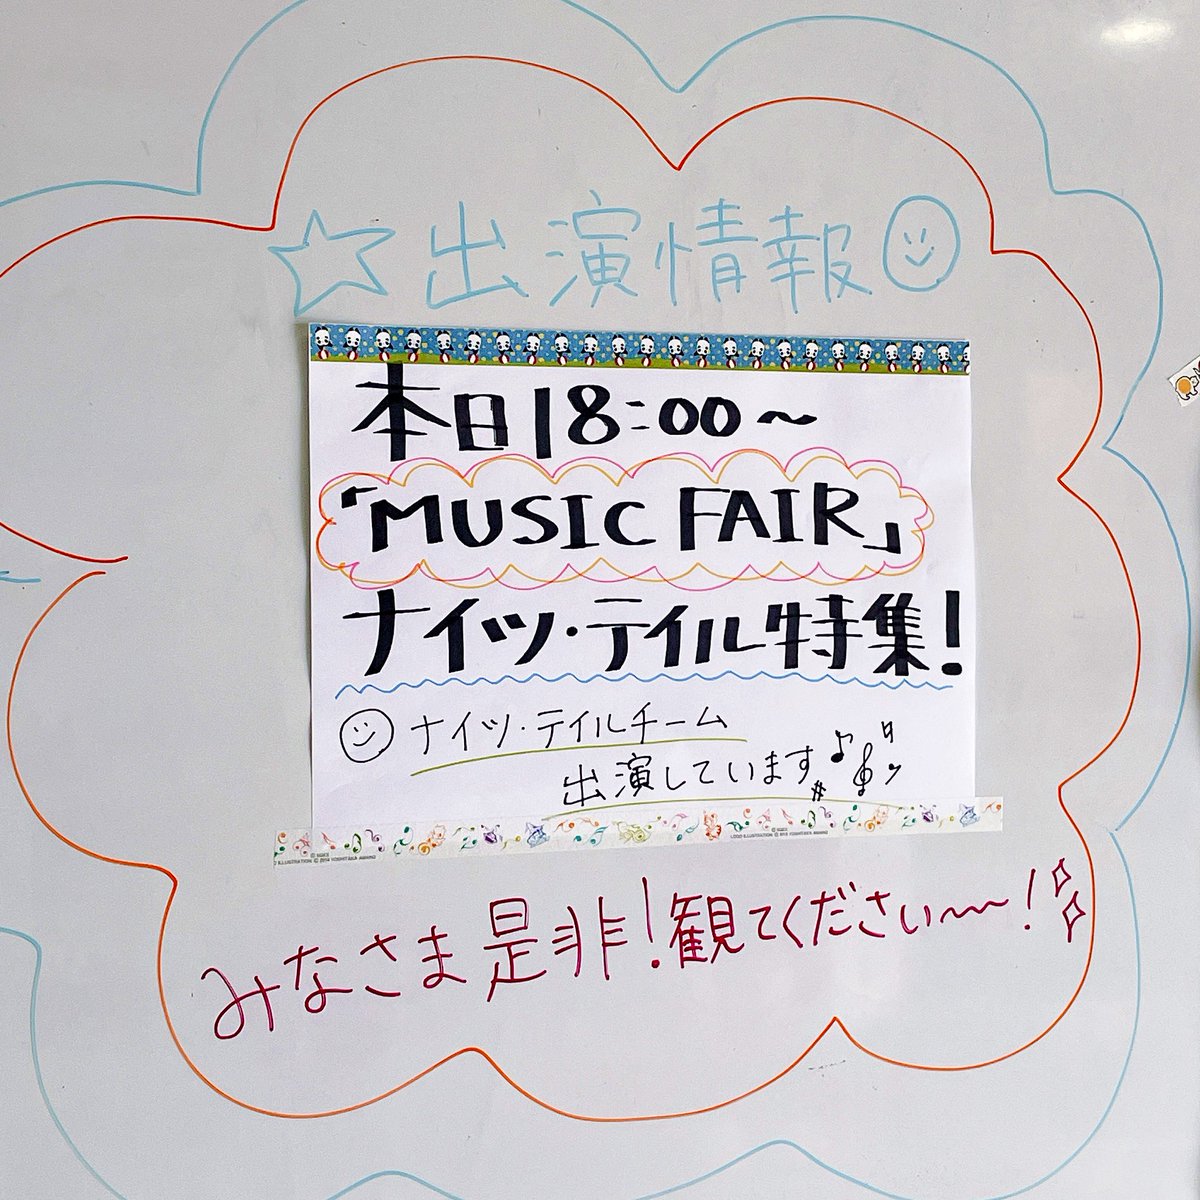 ☆出演情報
本日18:00〜
「MUSIC FAIR」
ナイツ・テイル特集!
ナイツ・テイルチーム
出演しています♪
みなさま是非!観てくださいー〜!